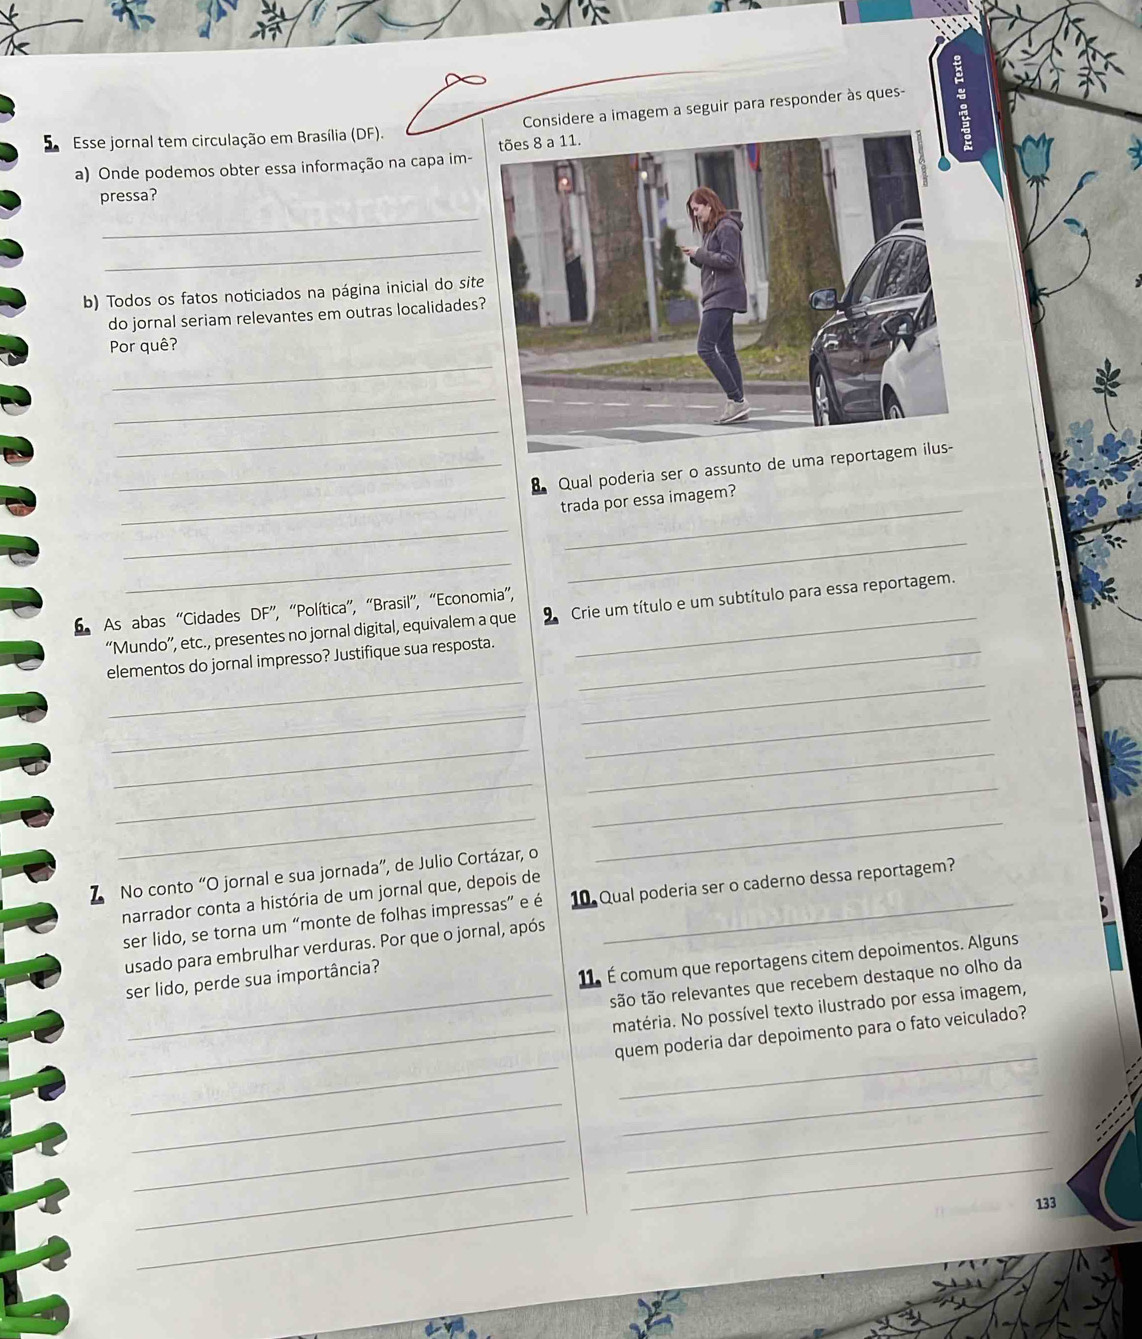 Produção de Texto
5. Esse jornal tem circulação em Brasília (DF).
a) Onde podemos obter essa informação na capa im-
pressa?
b) Todos os fatos noticiados na página inicial do site
do jornal seriam relevantes em outras localidades?
Por quê?
6. As abas “Cidades DF”, “Política”, “Brasil”, “Economia”,
“Mundo”, etc., presentes no jornal digital, equivalem a que
elementos do jornal impresso? Justifique sua resposta.
7. No conto “O jornal e sua jornada”, de Julio Cortázar, o
narrador conta a história de um jornal que, depois de
ser lido, se torna um “monte de folhas impressas” e é
usado para embrulhar verduras. Por que o jornal, após
ser lido, perde sua importância?
Considere a imagem a seguir para responder às ques-
tões 8 a 11.
8. Qual poderia ser o assunto de uma reportagem ilus-
trada por essa imagem?
9. Crie um título e um subtítulo para essa reportagem.
10. Qual poderia ser o caderno dessa reportagem?
11. É comum que reportagens citem depoimentos. Alguns
são tão relevantes que recebem destaque no olho da
matéria. No possível texto ilustrado por essa imagem,
quem poderia dar depoimento para o fato veiculado?
133